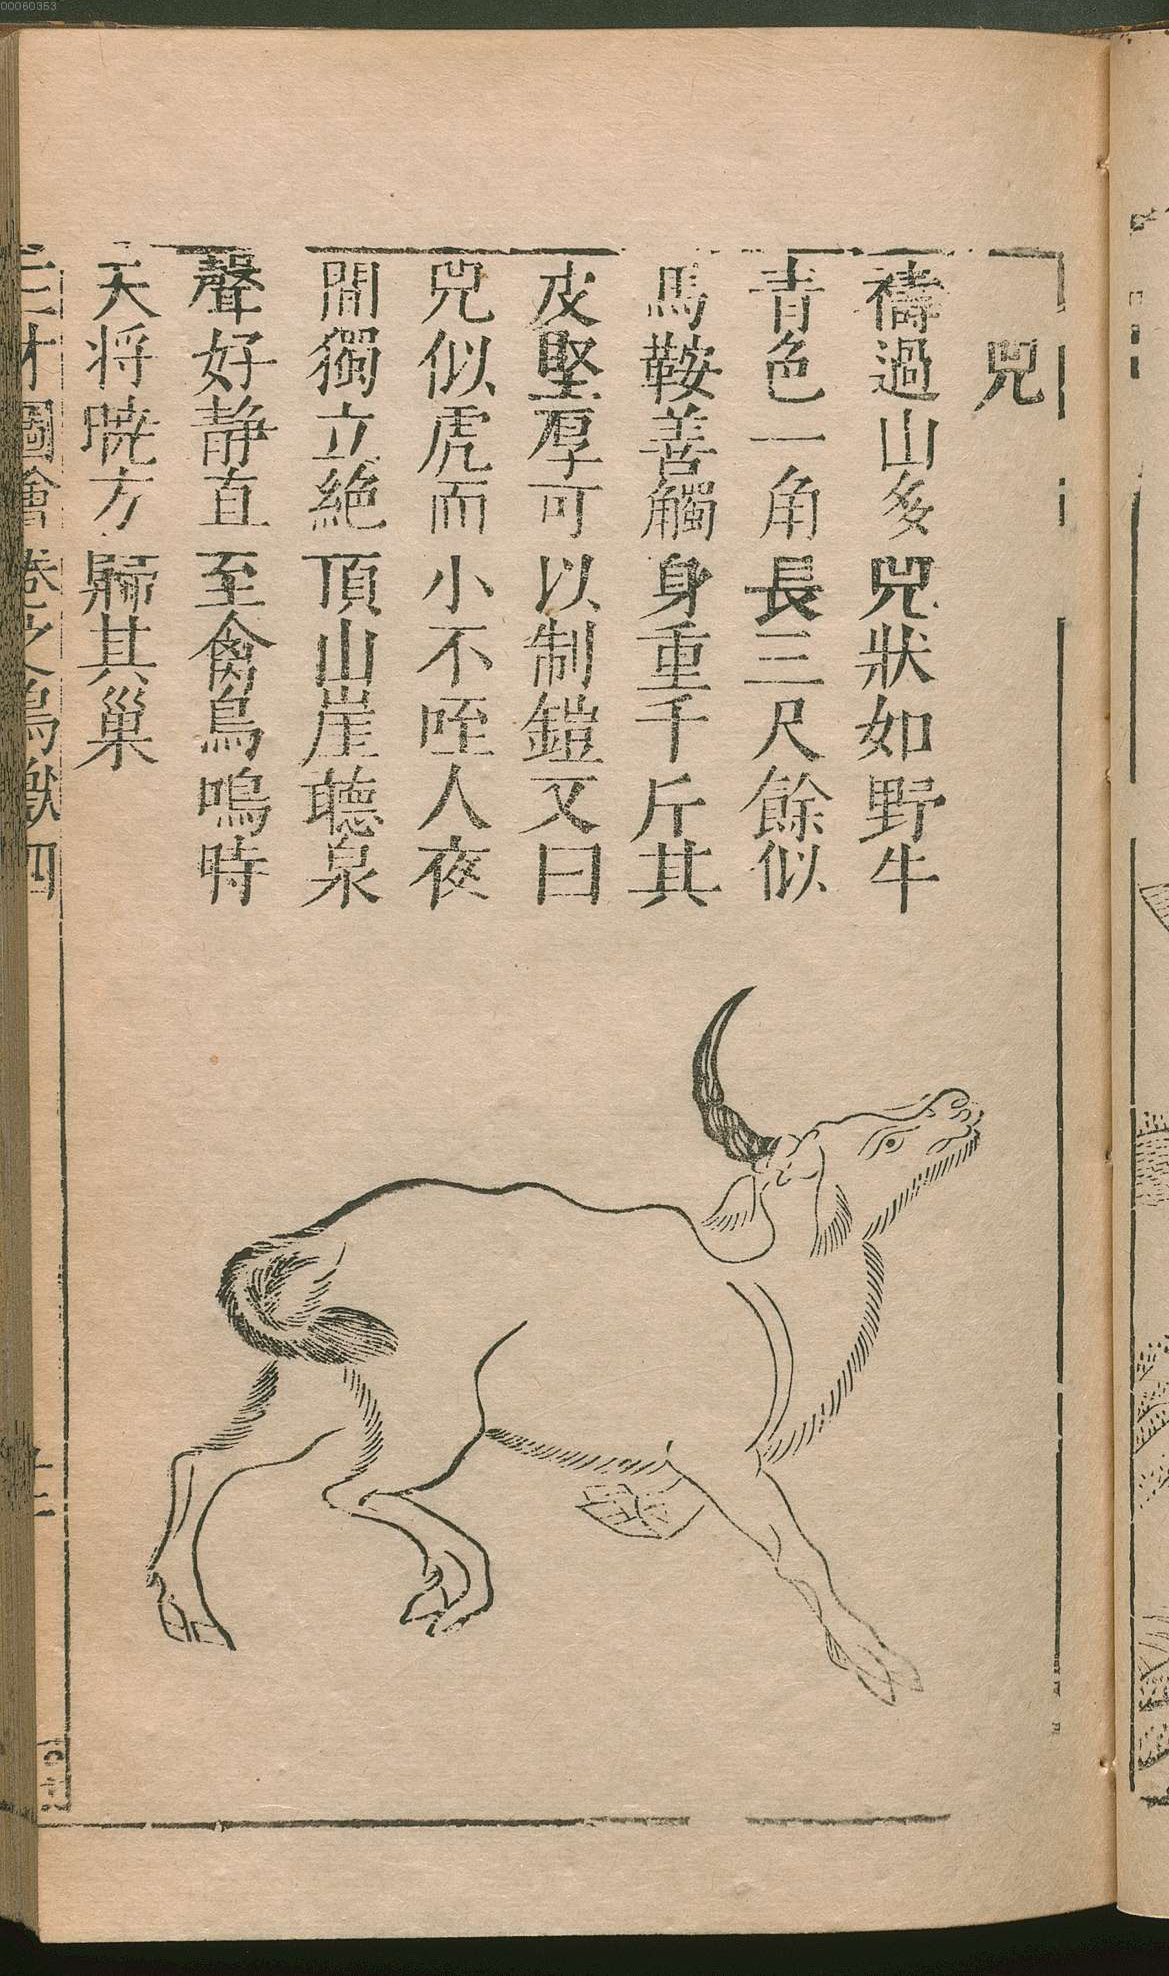 兕
禱過山多兕狀如野牛
青色一角長三尺餘似
馬鞍善觸身重千斤其
皮堅厚可以制鎧又曰
兕似虎而小不咥人夜
間獨立絶頂山崖聽泉
聲好静直至禽鳥鳴時
天将暁方歸其巢
三才圖會卷之鳥獸四
00060353